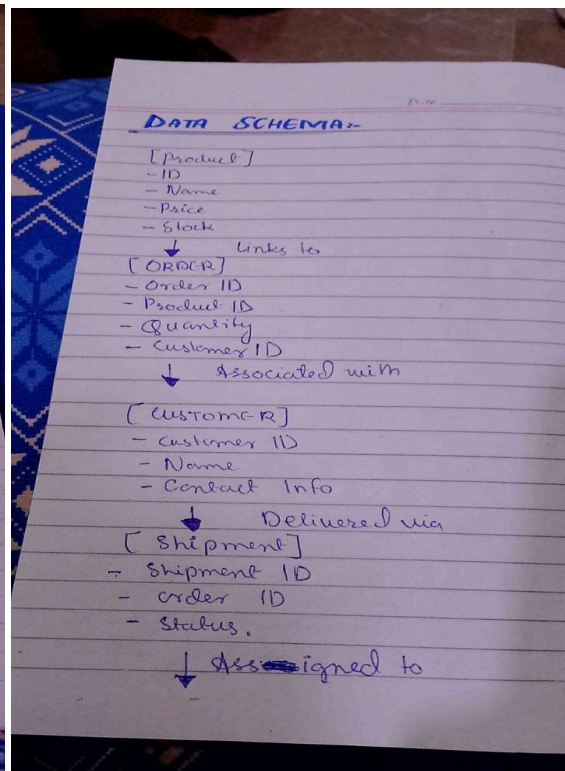 Date
DATA SCHEMA:-
[Product]
- ID
- Name
- Price
- Stock
↓ Links to
[ORDER]
- Order ID
- Product ID
- Quantity
- Customer ID
↓ Associated with
[CUSTOMER]
- Customer ID
- Name
- Contact Info
↓ Delivered via
[Shipment]
- Shipment ID
- order ID
- Status.
↓ Assigned to